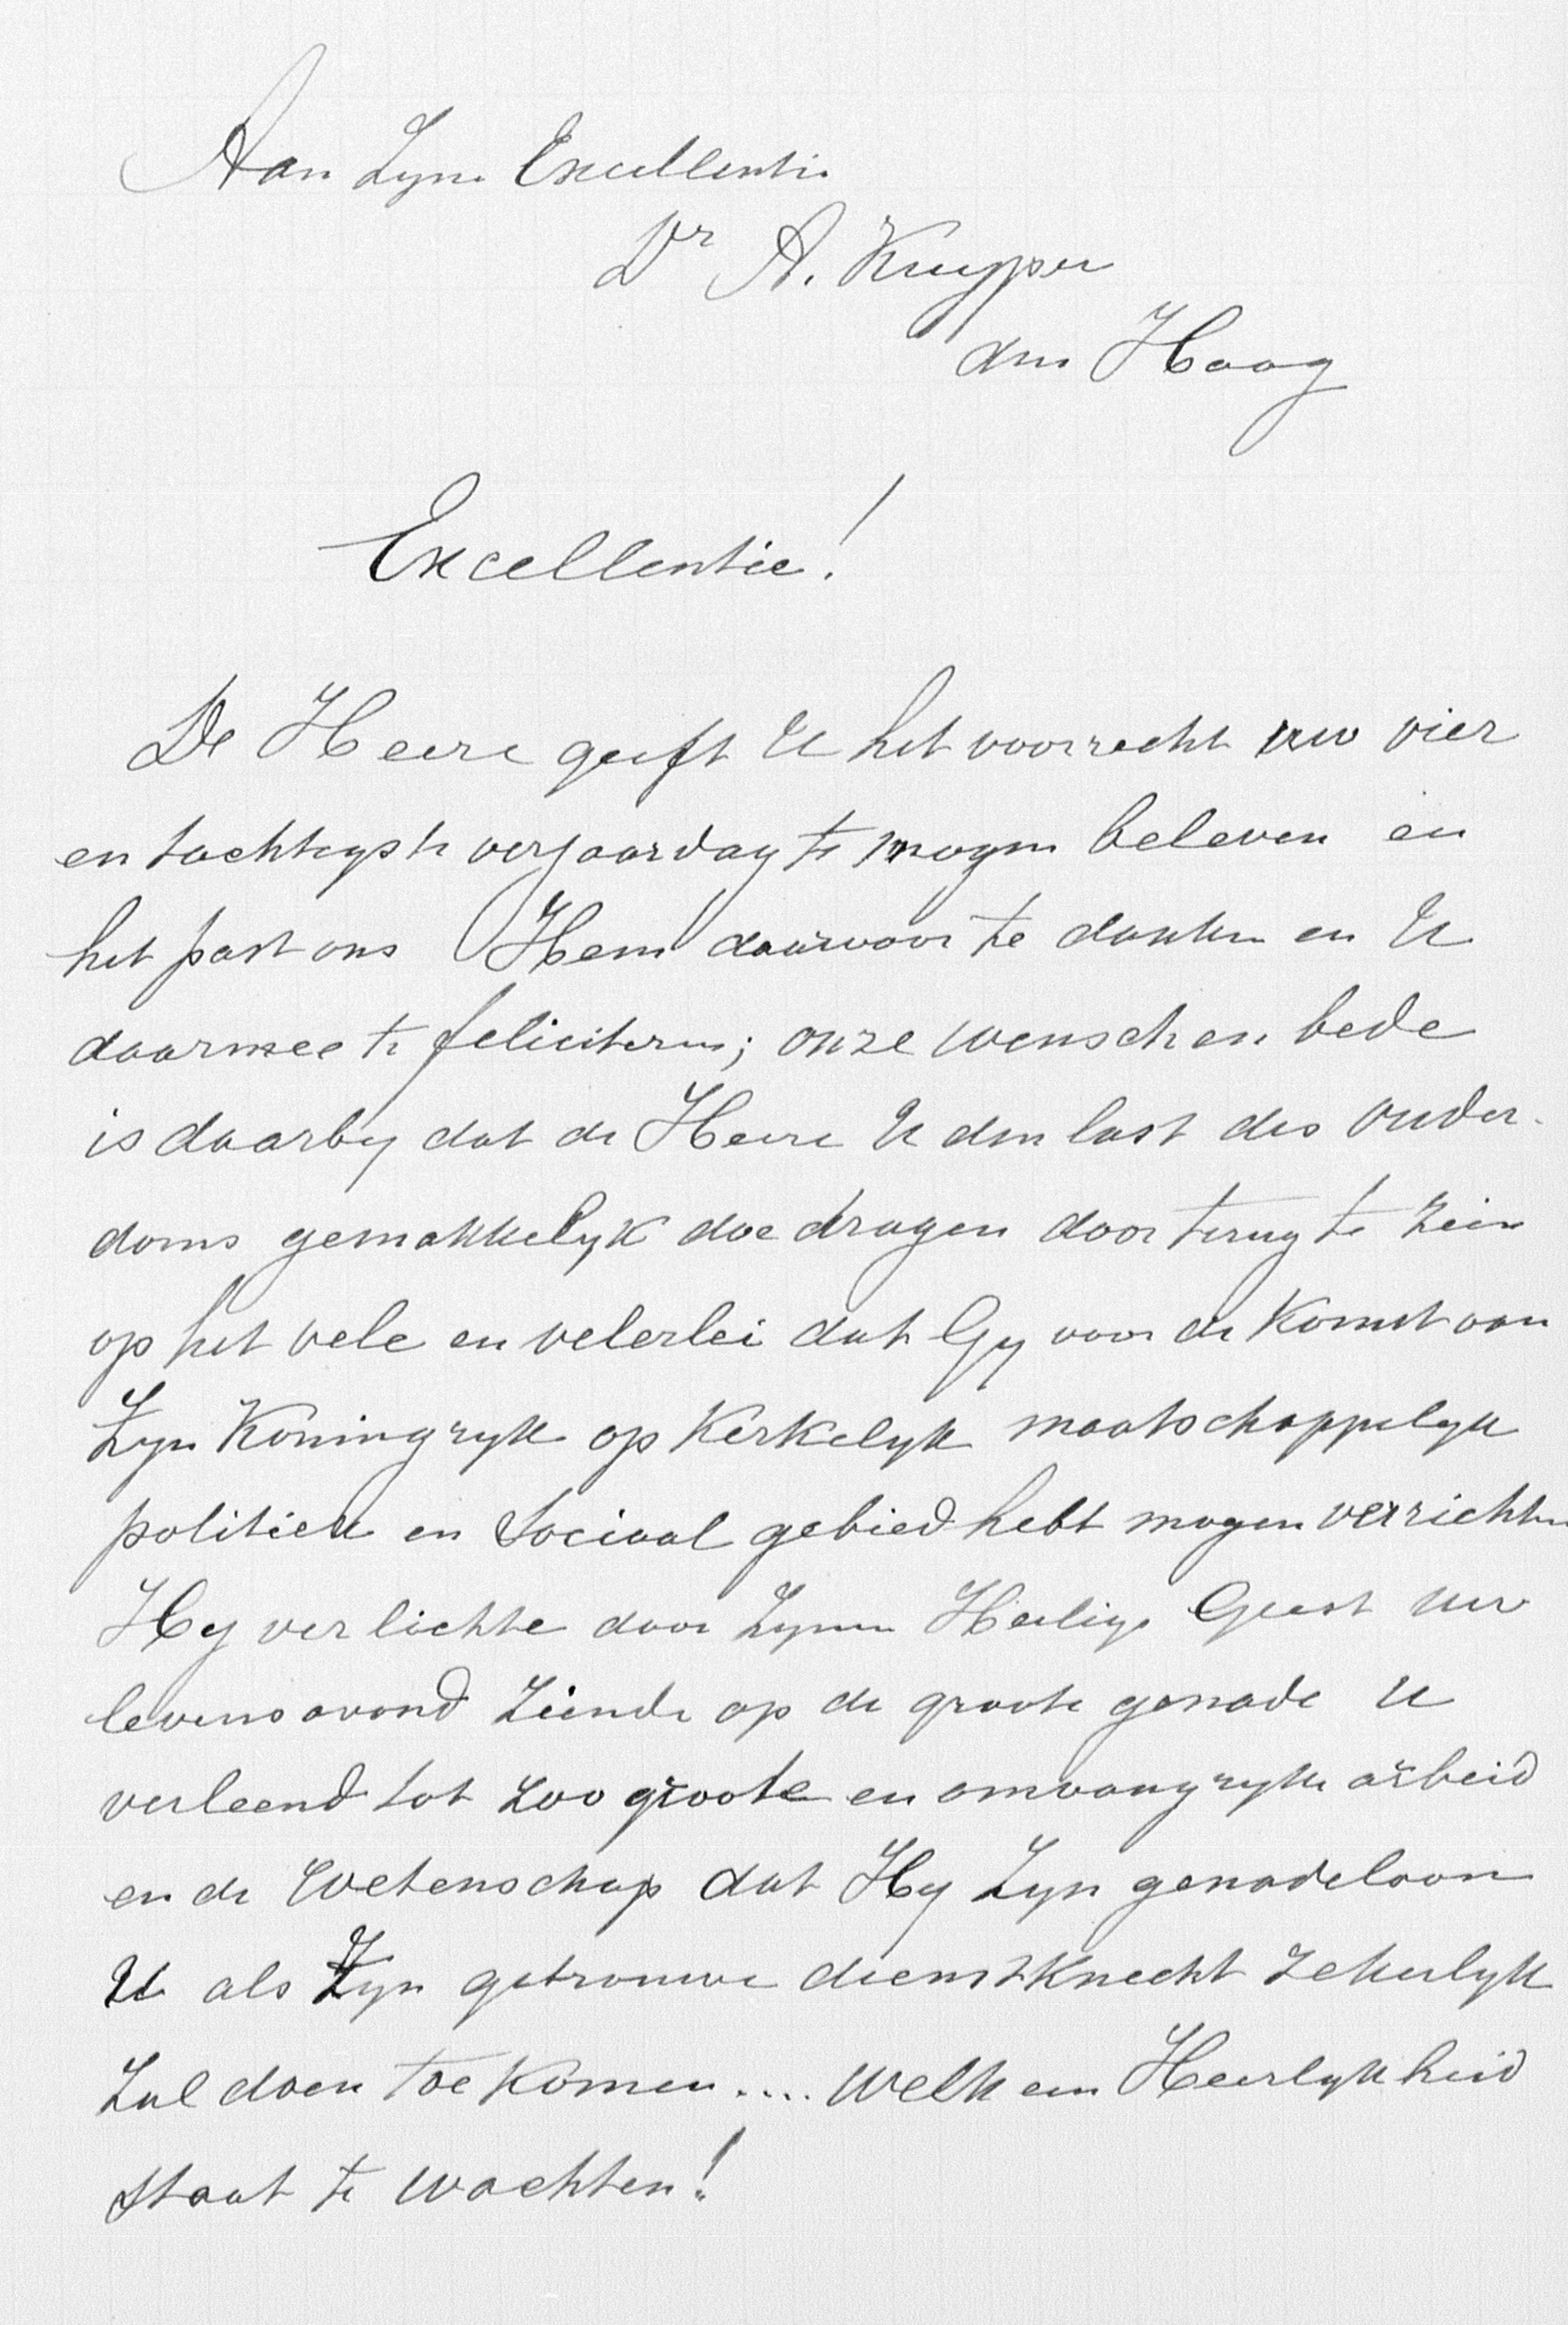 Aan Zyne Excellentie
Dr A. Kuyper
den Haag
Excellentie!
De Heere geeft U het voorrecht uw vier
en tachtigste verjaardag te mogen beleven en
het past ons Hem daarvoor te danken en U
daarmee te feliciteren; onze wensch en bede
is daarby dat de Heere U den last des ouder-
doms gemakkelyk doe dragen door terug te zien
op het vele en velerlei dat Gy voor de Komst van
Zyn Koningryk op Kerkelyk maatschappelyk
politiek en Sociaal gebied hebt mogen verrichten
Hy verlichte door Zynen Heilige Geest Uw
levensavond ziende op de groote genade U
verleend tot zoo groote en omvangryke arbeid
en de Wetenschap dat Hy Zyn genadeloon
U als Zyn getrouwe dienstKnecht zekerlyk
zal doen toe Komen.... Welk een Heerlykheid
staat te wachten!